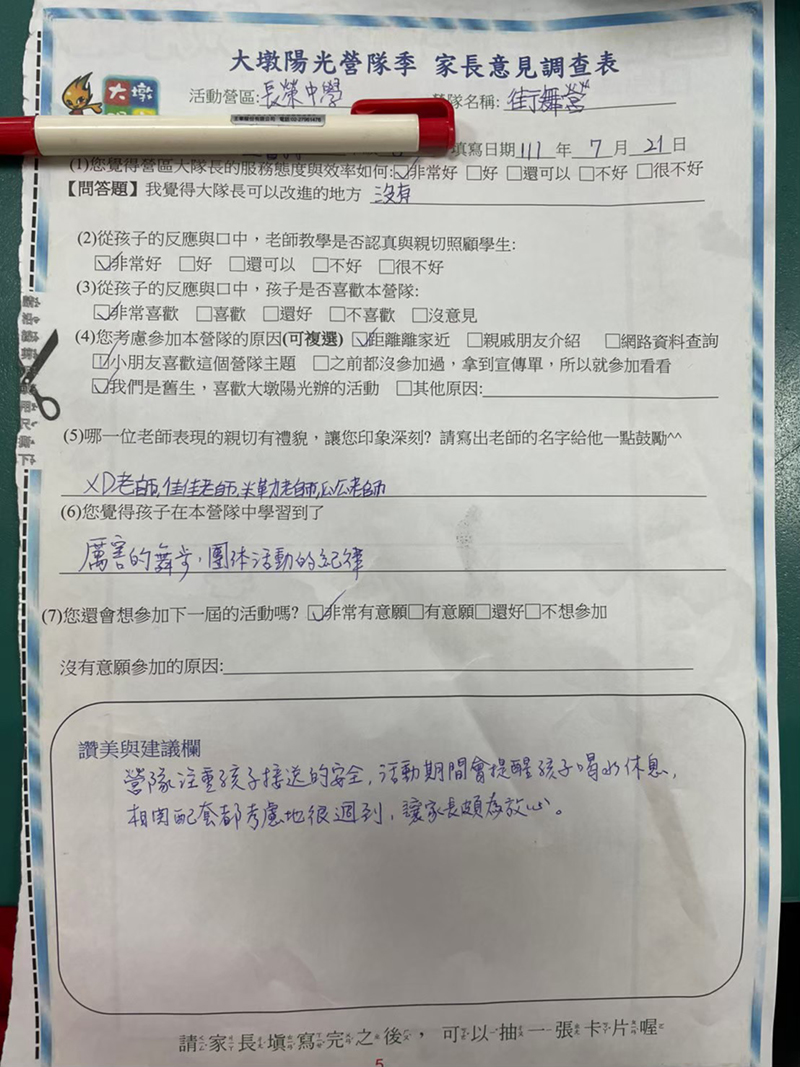 大墩陽光營隊季 家長意見調查表
大墩
活動營區:長榮中學 營隊名稱: 街舞營
填寫日期111年7月21日
(1)您覺得營區大隊長的服務態度與效率如何:☑非常好 □好 □還可以 □不好 □很不好
【問答題】我覺得大隊長可以改進的地方 沒有
(2)從孩子的反應與口中，老師教學是否認真與親切照顧學生:
☑非常好 □好 □還可以 □不好 □很不好
(3)從孩子的反應與口中，孩子是否喜歡本營隊:
☑非常喜歡 □喜歡 □還好 □不喜歡 □沒意見
(4)您考慮參加本營隊的原因(可複選) ☑距離離家近 □親戚朋友介紹 □網路資料查詢
☑小朋友喜歡這個營隊主題 □之前都沒參加過，拿到宣傳單，所以就參加看看
☑我們是舊生，喜歡大墩陽光辦的活動 □其他原因:
(5)哪一位老師表現的親切有禮貌，讓您印象深刻? 請寫出老師的名字給他一點鼓勵^^
XD老師,佳佳老師,米勒老師,瓜瓜老師
(6)您覺得孩子在本營隊中學習到了
厲害的舞步,團体活動的紀律
(7)您還會想參加下一屆的活動嗎? ☑非常有意願□有意願□還好□不想參加
沒有意願參加的原因:
讚美與建議欄
營隊注重孩子接送的安全,活動期間會提醒孩子喝水休息,
相関配套都考慮地很週到,讓家長頗為放心。
請家長填寫完之後，可以抽一張卡片喔
5